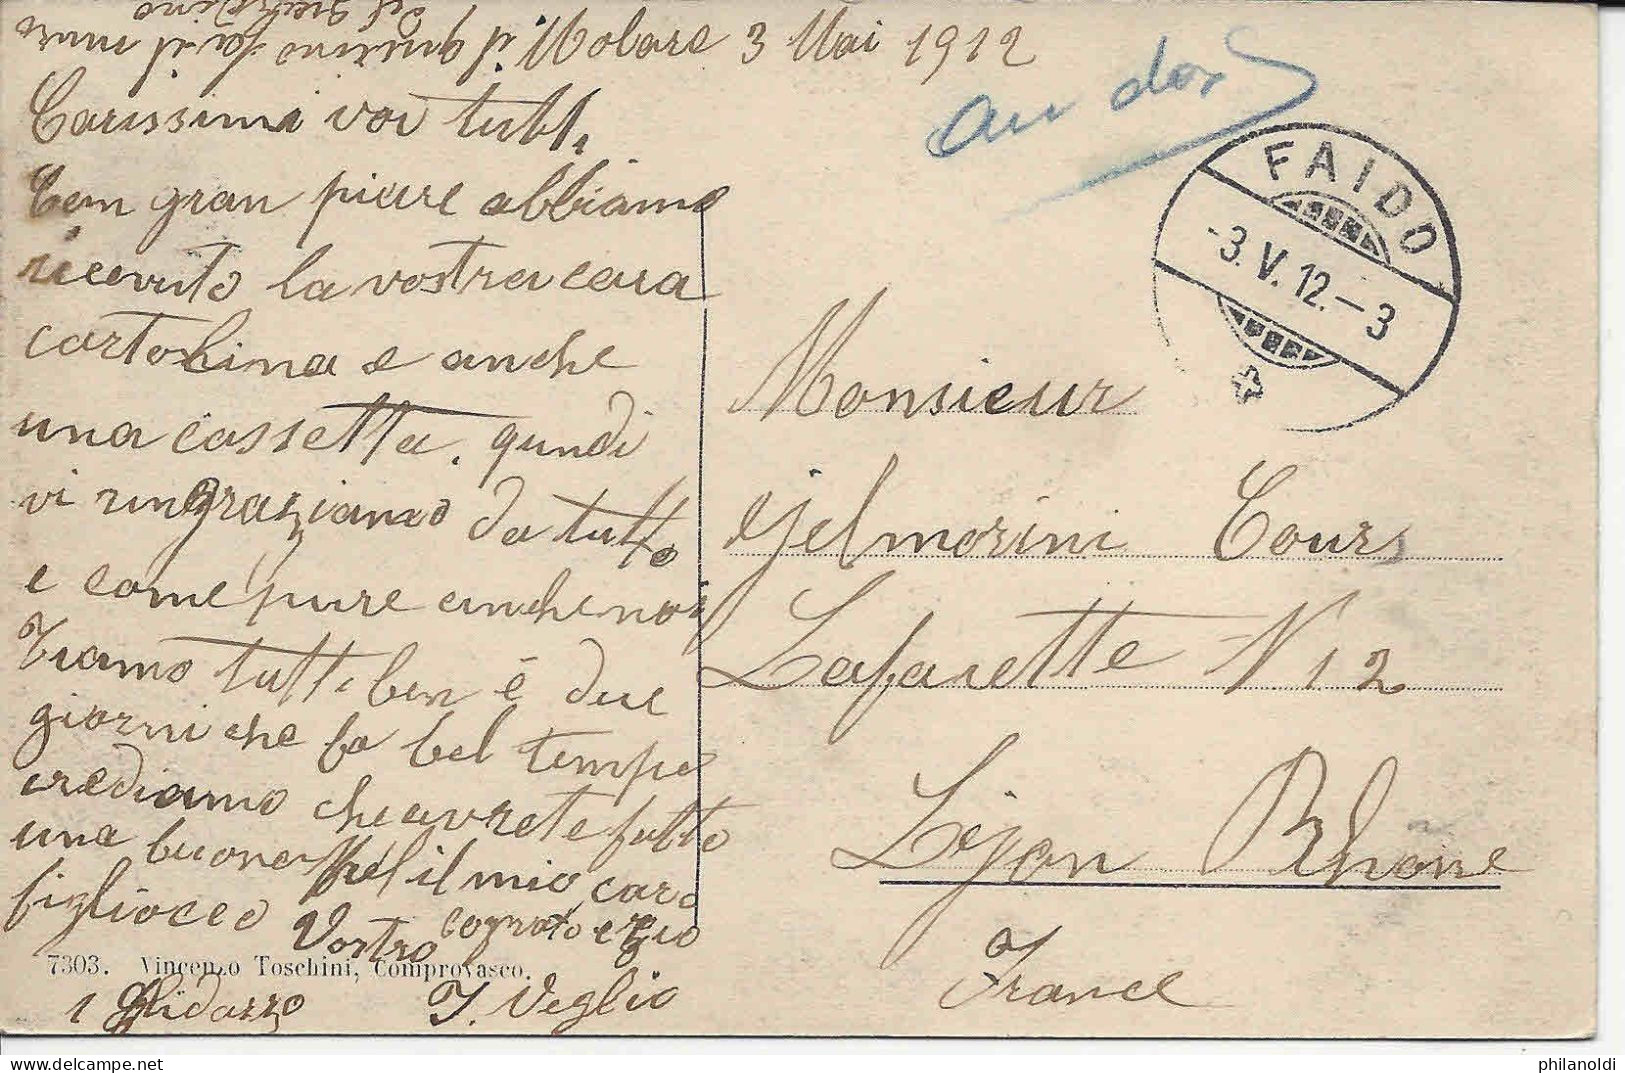 Molare 3 Mai 1912
Carissimi voi tutti,
Com gran piacre abbiamo
ricevuto la vostra cara
cartolina e anche
una cassetta. quindi
vi ringraziamo da tutto
e come pure anche noi
siamo tutti ben è due
giorni che fa bel tempo
crediamo che avrete fatto
una buona
figlioceo
pel il mio caro
Vostro cognato e zio
J. Veglio
au dos
FAIDO
-3.V.12.-3
Monsieur
Gjelmorini Cours
Lafaiette N 12
Lijon Rhone
France
7303. Vincenzo Toschini, Comprovasco.
philanoldi